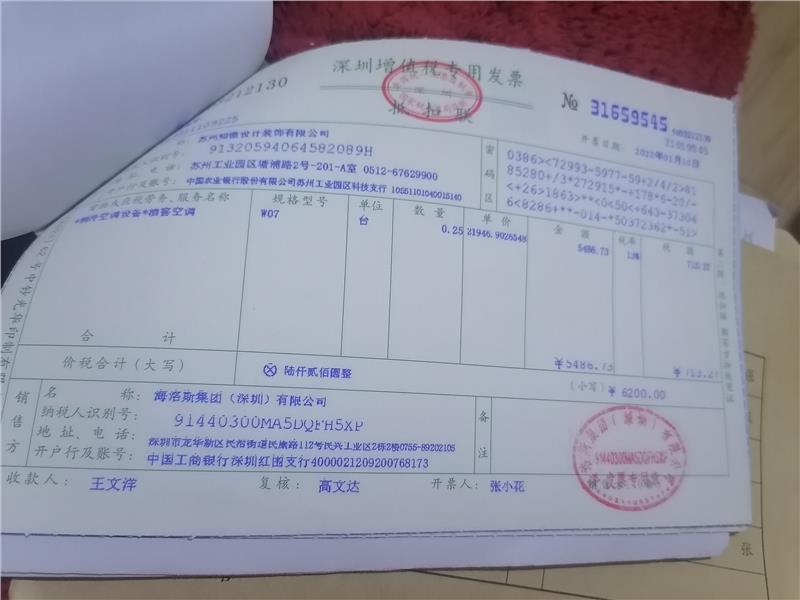 深圳增值税专用发票
抵扣联
№ 31659545
开票日期: 2022年01月10日
苏州知微设计装饰有限公司
91320594064582089H
苏州工业园区塘浦路2号-201-A室 0512-67629900
开户行及账号: 中国农业银行股份有限公司苏州工业园区科技支行 10551101040015140
密码区
0386><72993-5977-59+2/4/2>81
85280+/3*272915*-+178*6-20/-
<+26>1863>**<0<50<+643-37304
6<8286+**-014-+50372362*-51>
货物或应税劳务、服务名称 规格型号 单位 数量 单价 金额 税率 税额
*制冷空调设备* W07 台 0.25 21946.9026548 5486.73 13% 713.27
合计 ¥5486.73 ¥713.27
价税合计(大写) ⊗ 陆仟贰佰圆整 (小写) ¥ 6200.00
销售方
名称: 海洛斯集团(深圳)有限公司
纳税人识别号: 91440300MA5DQFH5XP
地址、电话: 深圳市龙华新区民治街道民康路112号民兴工业区2栋2楼0755-89202105
开户行及账号: 中国工商银行深圳红围支行4000021209200768173
备注
收款人: 王文洋 复核: 高文达 开票人: 张小花
91440300MA5DQFH5XP
发票专用章
张